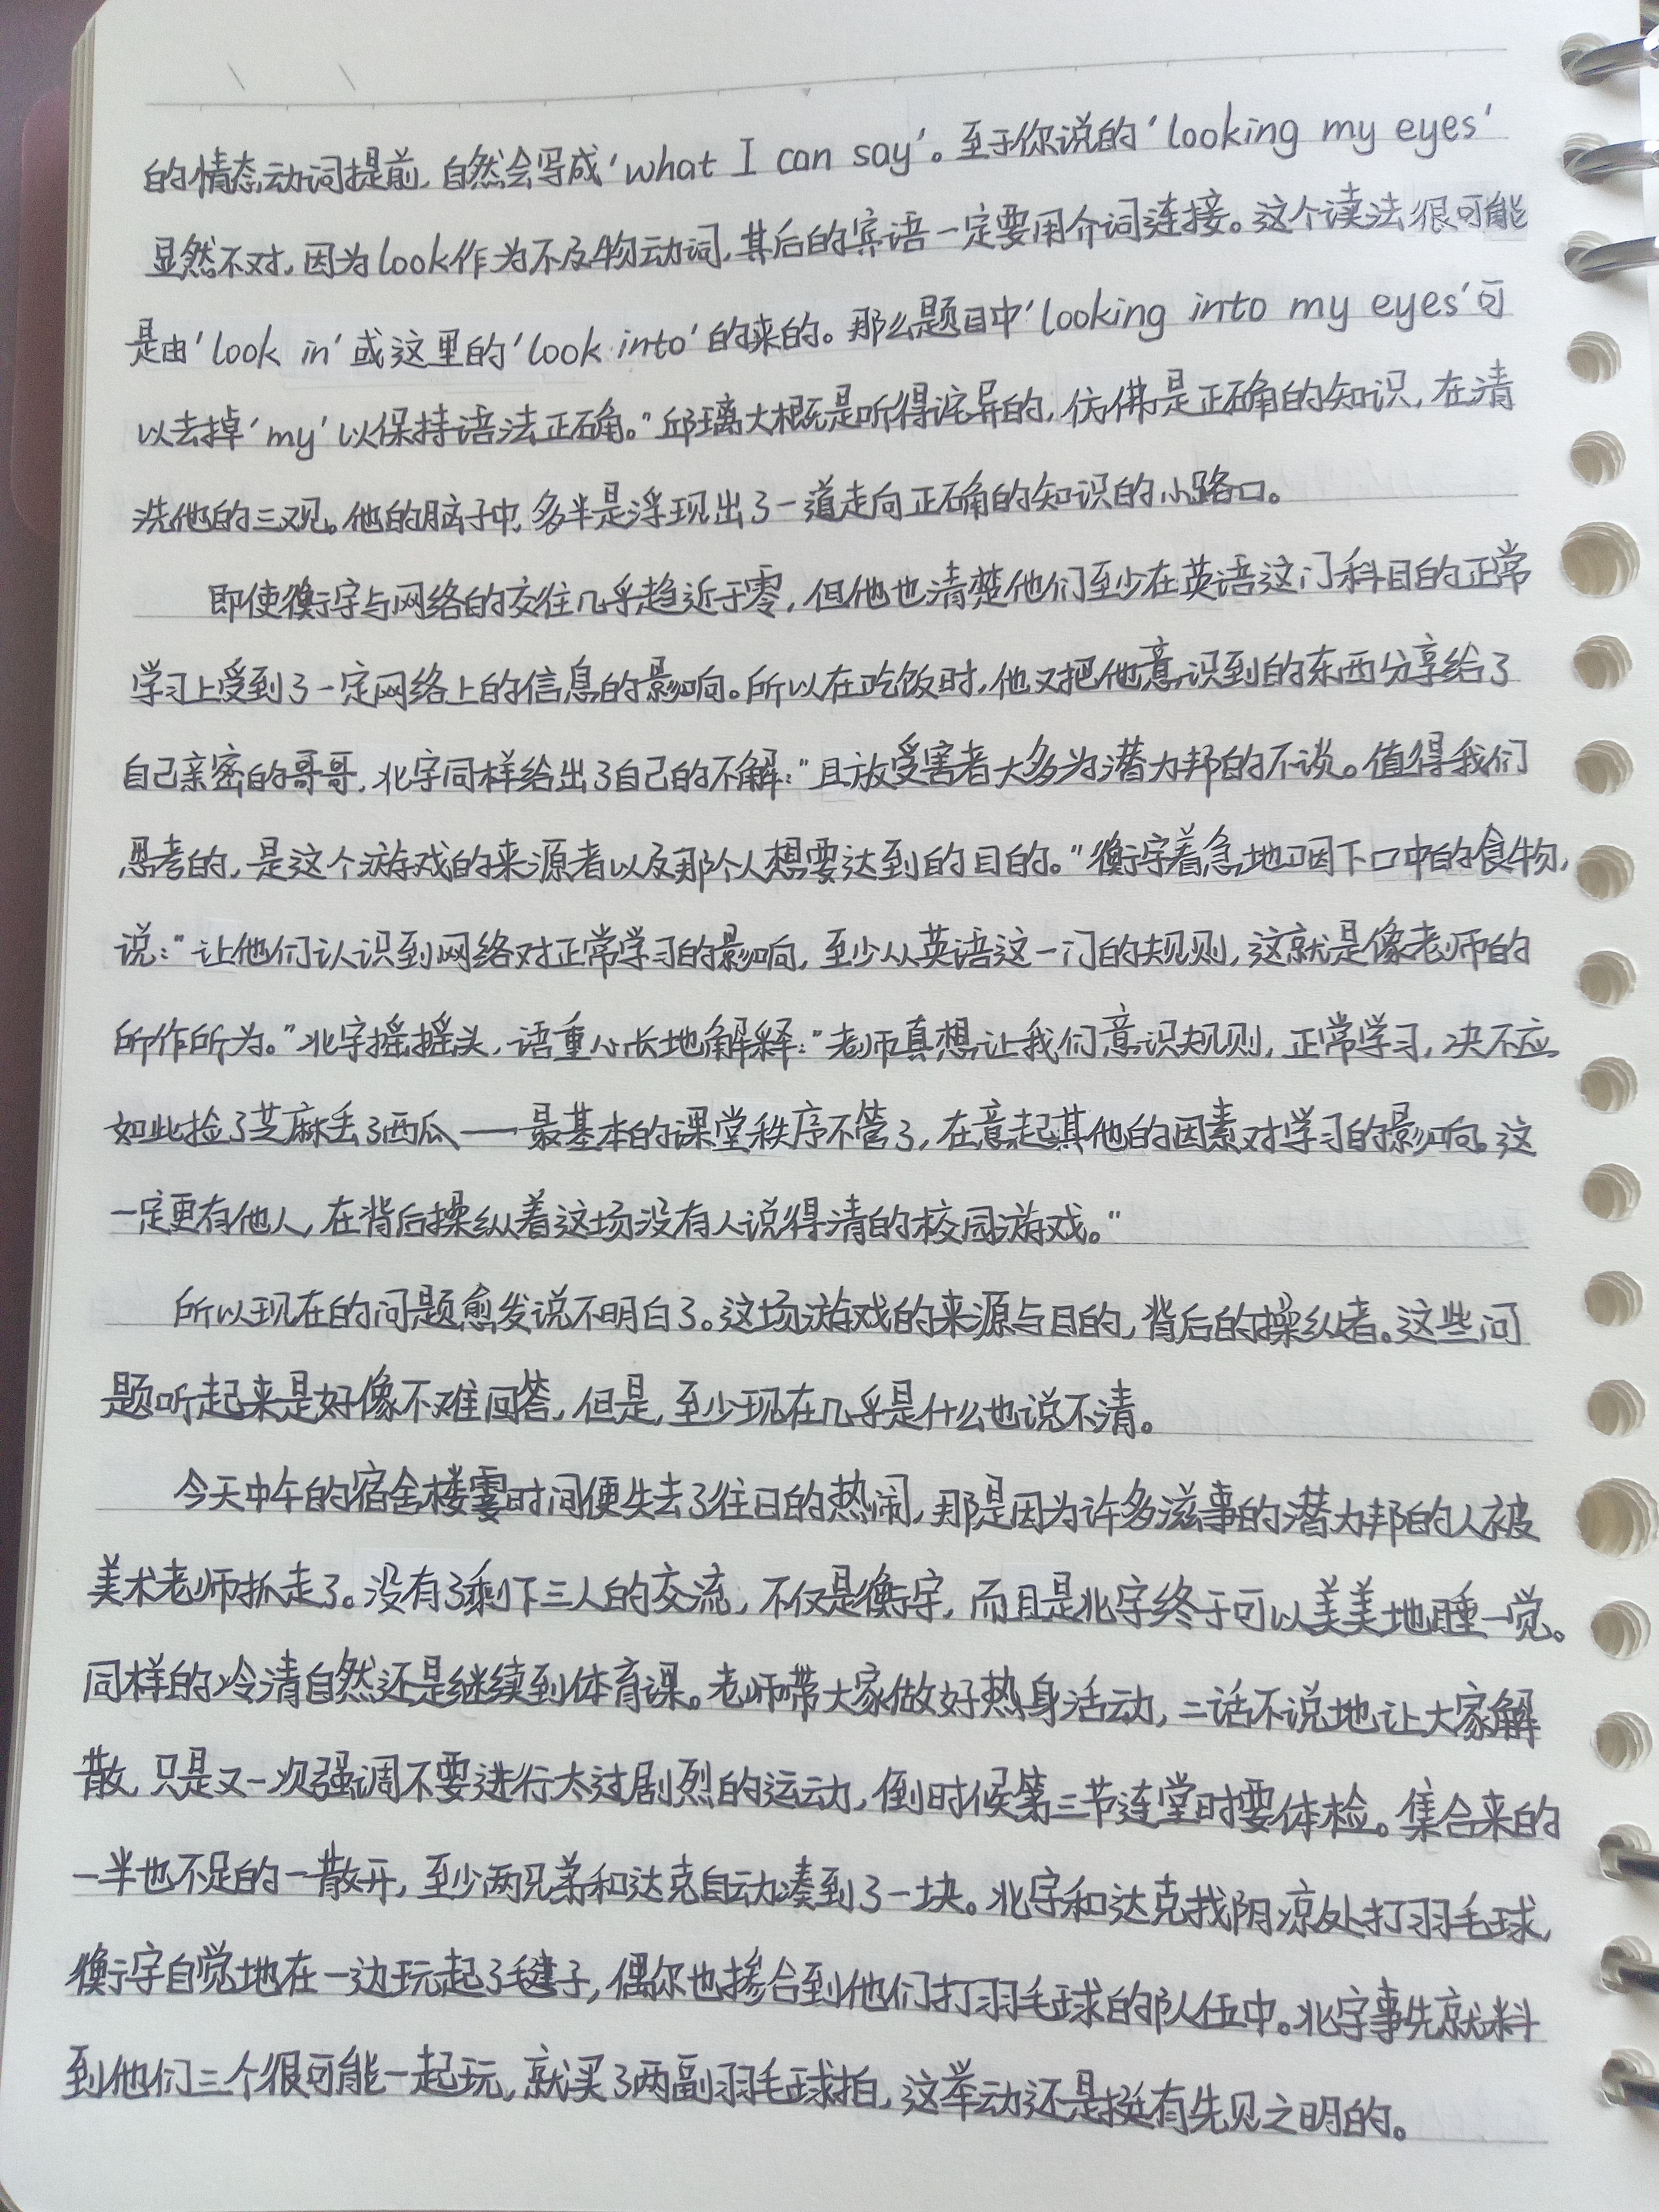 的情态动词提前，自然会写成‘what I can say’。至于你说的‘looking my eyes’
显然不对，因为look作为不及物动词，其后的宾语一定要用介词连接。这个读法很可能
是由‘look in’或这里的‘look into’的来的。那么题目中‘looking into my eyes’可
以去掉‘my’以保持语法正确。”邱璃大概是听得诧异的，仿佛是正确的知识，在清
洗他的三观。他的脑子中，多半是浮现出了一道走向正确的知识的小路口。
即使衡宇与网络的交往几乎趋近于零，但他也清楚他们至少在英语这门科目的正常
学习上受到了一定网络上的信息的影响。所以在吃饭时，他又把他意识到的东西分享给了
自己亲密的哥哥，北宇同样给出了自己的不解：“且放受害者大多为潜力邦的不谈。值得我们
思考的，是这个游戏的来源者以及那个人想要达到的目的。”衡宇着急地咽下口中的食物，
说：“让他们认识到网络对正常学习的影响，至少从英语这一门的规则，这就是像老师的
所作所为。”北宇摇摇头，语重心长地解释：“老师真想让我们意识规则，正常学习，决不应
如此捡了芝麻丢了西瓜——最基本的课堂秩序不管了，在意起其他的因素对学习的影响。这
一定更有他人，在背后操纵着这场没有人说得清的校园游戏。”
所以现在的问题愈发说不明白了。这场游戏的来源与目的，背后的操纵者。这些问
题听起来是好像不难回答，但是，至少现在几乎是什么也说不清。
今天中午的宿舍楼霎时间便失去了往日的热闹，那是因为许多滋事的潜力邦的人被
美术老师抓走了。没有了剩下三人的交流，不仅是衡宇，而且是北宇终于可以美美地睡一觉。
同样的冷清自然还是继续到体育课。老师带大家做好热身活动，二话不说地让大家解
散，只是又一次强调不要进行太过剧烈的运动，倒时候第三节连堂时要体检。集合来的
一半也不足的一散开，至少两兄弟和达克自动凑到了一块。北宇和达克找阴凉处打羽毛球，
衡宇自觉地在一边玩起了毽子，偶尔也掺合到他们打羽毛球的队伍中。北宇事先就料
到他们三个很可能一起玩，就买了两副羽毛球拍，这举动还是挺有先见之明的。